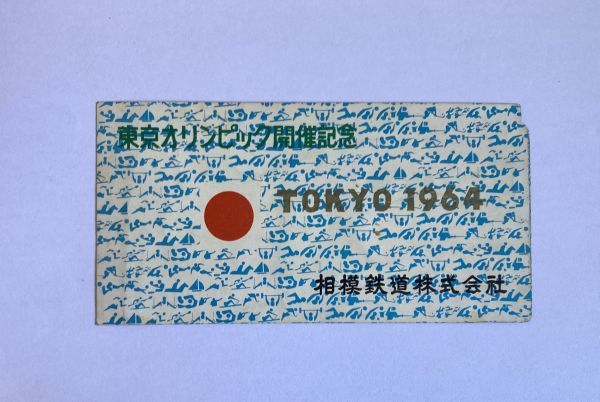 東京オリンピック開催記念
TOKYO 1964
相模鉄道株式会社